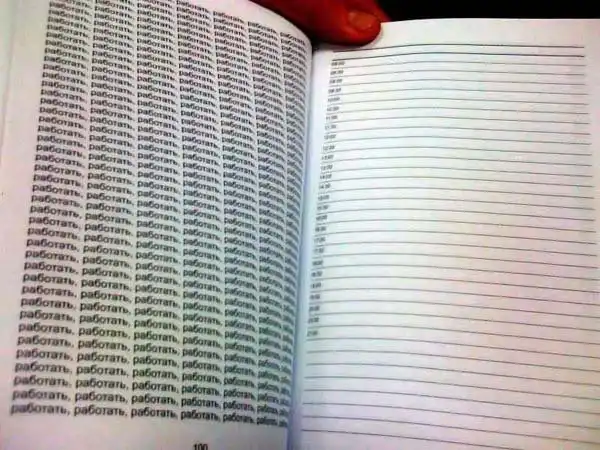 работать, работать, работать, работать, работать, работать,
работать, работать, работать, работать, работать, работать,
работать, работать, работать, работать, работать, работать,
работать, работать, работать, работать, работать, работать,
работать, работать, работать, работать, работать, работать,
работать, работать, работать, работать, работать, работать,
работать, работать, работать, работать, работать, работать,
работать, работать, работать, работать, работать, работать,
работать, работать, работать, работать, работать, работать,
работать, работать, работать, работать, работать, работать,
работать, работать, работать, работать, работать, работать,
работать, работать, работать, работать, работать, работать,
работать, работать, работать, работать, работать, работать,
работать, работать, работать, работать, работать, работать,
работать, работать, работать, работать, работать, работать,
работать, работать, работать, работать, работать, работать,
работать, работать, работать, работать, работать, работать,
работать, работать, работать, работать, работать, работать,
работать, работать, работать, работать, работать, работать,
работать, работать, работать, работать, работать, работать,
работать, работать, работать, работать, работать, работать,
работать, работать, работать, работать, работать, работать,
работать, работать, работать, работать, работать, работать,
работать, работать, работать, работать, работать, работать,
работать, работать, работать, работать, работать, работать,
работать, работать, работать, работать, работать, работать,
работать, работать, работать, работать, работать, работать,
работать, работать, работать, работать, работать, работать,
работать, работать, работать, работать, работать, работать,
работать, работать, работать, работать, работать, работать,
работать, работать, работать, работать, работать, работать,
работать, работать, работать, работать, работать, работать,
работать, работать, работать, работать, работать, работать,
работать, работать, работать, работать, работать, работать,
работать, работать, работать, работать, работать, работать,
работать, работать, работать, работать, работать, работать,
работать, работать, работать, работать, работать, работать,
работать, работать, работать, работать, работать, работать,
100
08:00
08:30
09:00
09:30
10:00
10:30
11:00
11:30
12:00
12:30
13:00
13:30
14:00
14:30
15:00
15:30
16:00
16:30
17:00
17:30
18:00